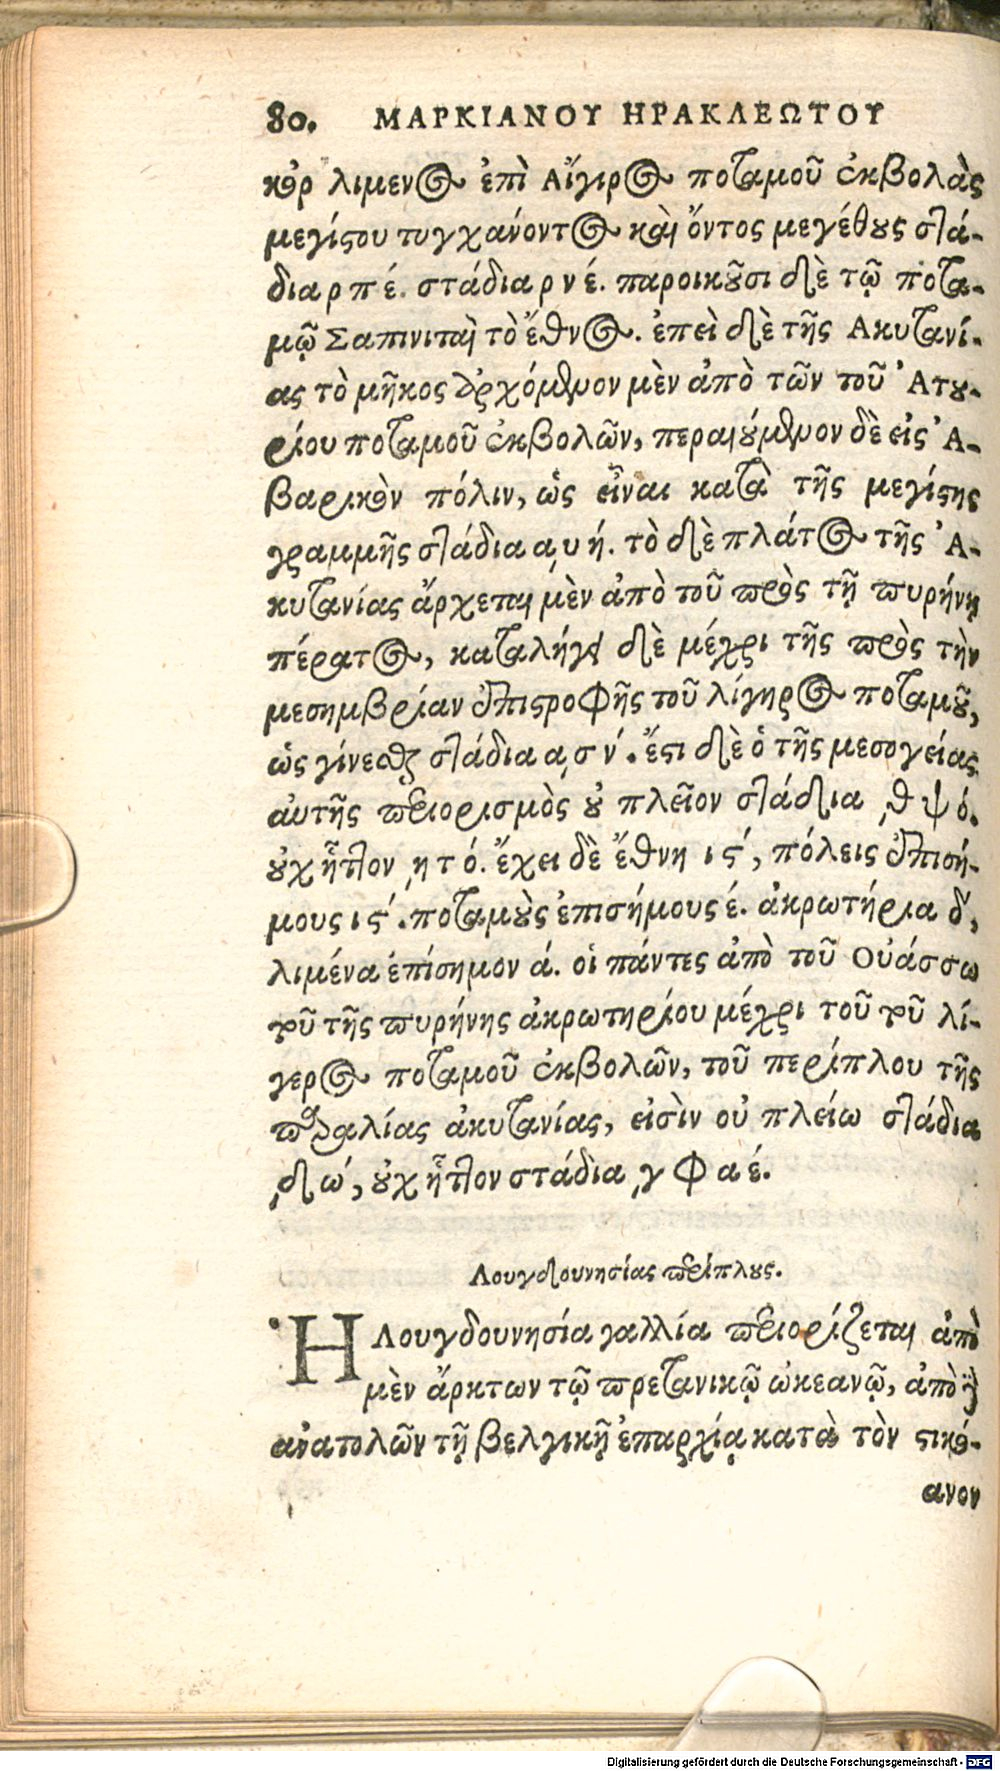 80. ΜΑΡΚΙΑΝΟΥ ΗΡΑΚΛΕΩΤΟΥ
κὸρ λιμενος ἐπὶ Αἴγιρος ποταμοῦ ἐκβολὰς
μεγίστου τυγχανόντος καὶ ὄντος μεγέθους στά-
δια ρ π έ. στάδια ρ ν έ. παροικοῦσι δὲ τῷ ποτα-
μῷ Σαπινιται τὸ ἔθνος. ἐπεὶ δὲ τῆς Ακυτανί-
ας τὸ μῆκος ἀρχόμενον μὲν ἀπὸ τῶν τοῦ Ἀτου-
ρίου ποταμοῦ ἐκβολῶν, περαιούμενον δὲ εἰς Ἀ-
βαρικὸν πόλιν, ὡς εἶναι κατὰ τῆς μεγίστης
γραμμῆς στάδια α, υ ή. τὸ δὲ πλάτος τῆς Ἀ-
κυτανίας ἄρχεται μὲν ἀπὸ τοῦ πρὸς τῇ πυρήνῃ
πέρατος, καταλήγει δὲ μέχρι τῆς πρὸς τὴν
μεσημβρίαν ἐπιστροφῆς τοῦ λίγηρος ποταμοῦ,
ὡς γίνεσθαι στάδια α, σ ν΄. ἔστι δὲ ὁ τῆς μεσογείας
αὐτῆς περιορισμὸς οὐ πλεῖον στάδια ͵θ ψ ό.
οὐχ ἧττον ͵η τ ό. ἔχει δὲ ἔθνη ι ς΄, πόλεις ἐπισή-
μους ι ς΄. ποταμοὺς ἐπισήμους έ. ἀκρωτήρια δ΄,
λιμένα ἐπίσημον ά. οἱ πάντες ἀπὸ τοῦ Οὐάσσω
τοῦ τῆς πυρήνης ἀκρωτηρίου μέχρι τοῦ τοῦ λί-
γερος ποταμοῦ ἐκβολῶν, τοῦ περίπλου τῆς
παραλίας ἀκυτανίας, εἰσὶν οὐ πλείω στάδια
͵δ ω΄, οὐχ ἧττον στάδια ͵γ φ α έ.
Λουγδουνησίας περίπλους.
Ἡ Λουγδουνησία γαλλία περιορίζεται ἀπὸ
μὲν ἄρκτων τῷ πρετανικῷ ὠκεανῷ, ἀπὸ
ἀνατολῶν τῇ βελγικῇ ἐπαρχίᾳ κατὰ τὸν στικό-
ανον
Digitalisierung gefördert durch die Deutsche Forschungsgemeinschaft - DFG